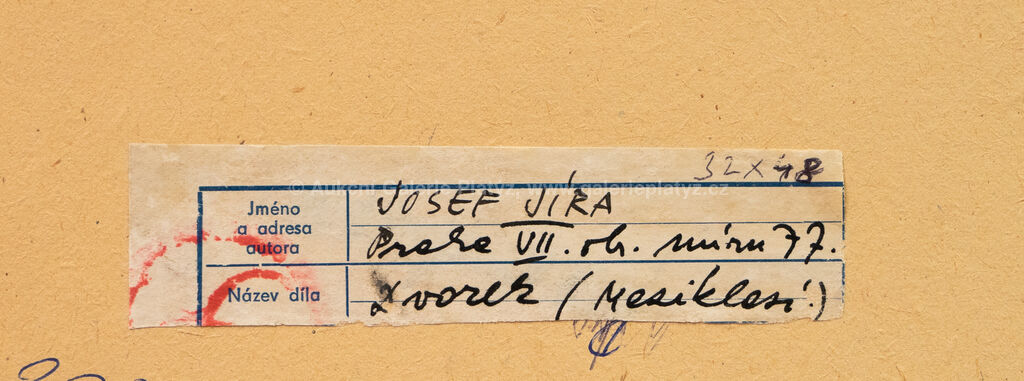 32 x 48
© Aukční Galerie Platýz, www.galerieplatyz.cz
Jméno
a adresa
autora
JOSEF JÍRA
Praha VII. ob. míru 77.
Název díla
Dvorek (Meziklesí)